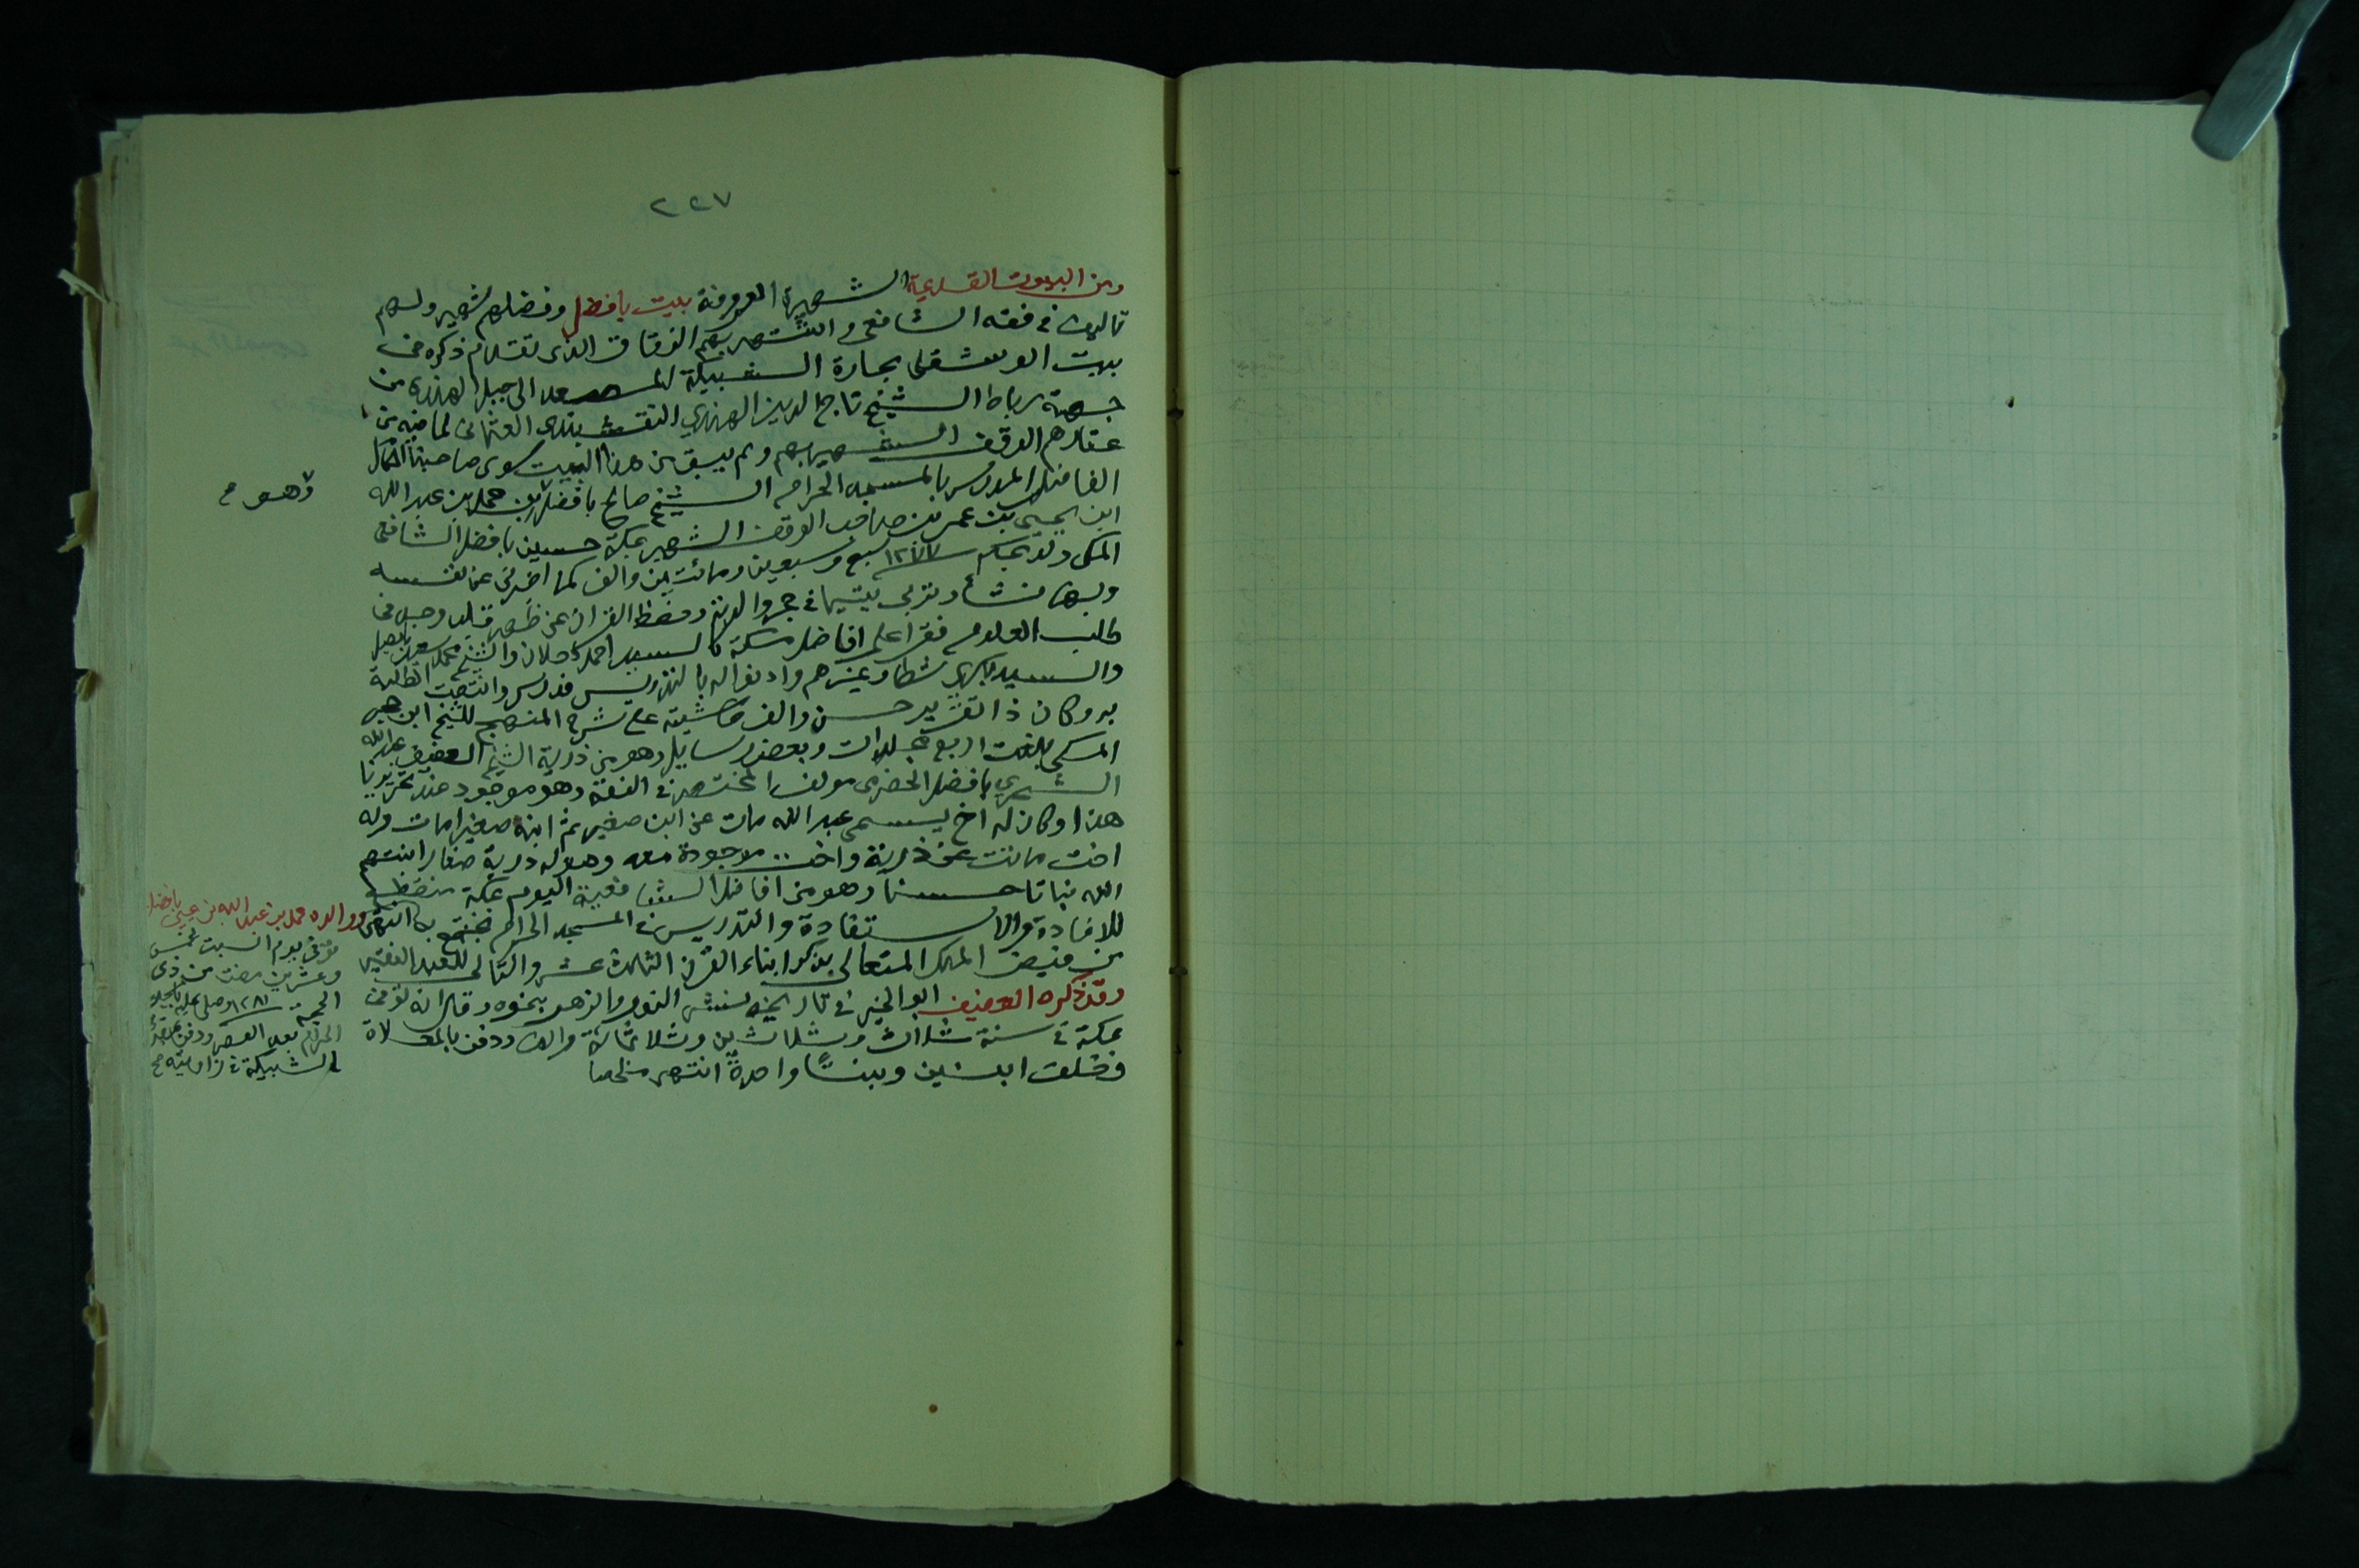 ٢٢٧
ومن البيوت القديمة الشهيرة المعروفة بيت بافضل وفضلهم شهير ولهم
تاليف في فقه الشافعي واشتهر بهم الزقاق الذى تقدم ذكره في
بيت الوشقلى بحارة الشبيكة المصعد الى جبل الهندى من
جهة رباط الشيخ تاج الدين الهندي النقشبندى العثمانى لما فيه من
عقارهم الوقف الشهير بهم ولم يبق من هذا البيت سوى صاحبنا الكامل
الفاضل المدرس بالمسجد الحرام الشيخ صالح بافضل بن محمد بن عبد الله
ابن يحيى بن عمر بن صاحب الوقف الشهير بمكة حسين بافضل الشافعى
المكى ولد بمكة سنة ١٢٧٧ سبع وسبعين ومائتين والف كما اخبرنى عن نفسه
وبها نشأ وتربى يتيما في حجر والدته وحفظ القران عن ظهر قلب وجد في
طلب العلوم فقرأ على افاضل مكة كالسيد احمد دحلان والشيخ محمد سعيد بابصيل
والسيد بكرى شطا وغيرهم واذنوا له بالتدريس فدرس وانتفعت الطلبة
به وكان ذا تقرير حسن والف حاشية على شرح المنهج للشيخ ابن حجر
المكى بلغت اربع مجلدات وبعض رسايل وهو من ذرية الشيخ العفيف عبد الله
الشحري بافضل الحضرمى مولف المختصر في الفقه وهو موجود عند تحريرنا
هذا وكان له اخ يسمى عبد الله مات عن ابن صغير ثم ابنه صغيرا مات وله
اخت ماتت عن ذرية واخت .. موجودة معه وهو له ذرية صغار انبتهم
الله نباتا حسنا وهو من افاضل الشافعية اليوم بمكة
للافادة والاستفادة والتدريس في المسجد الحرام انتهى
من فيض الملك المتعالى بذكر ابناء القرن الثالث عشر والتالى للعبد الفقير
وقد ذكره العفيف ابو الخير في تاريخه نشر النور والزهر بنحوه وقال انه توفى
بمكة في سنة ثلاث وثلاثين وثلاثمائة والف ودفن بالمعلاة
وخلف ابنين وبنتًا واحدةً انتهى ملخصا
وهو م
ووالده محمد بن عبد الله بن يحيى بافضل
توفى يوم السبت لخمس
وعشرين مضت من ذى
الحجة سنة ١٢٨١ وصلى عليه بالمسجد
الحرام بعد العصر ودفن
الشبيكة في